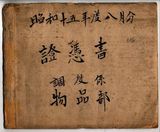 昭和十五年度八月分
證憑書
調度係
物品部